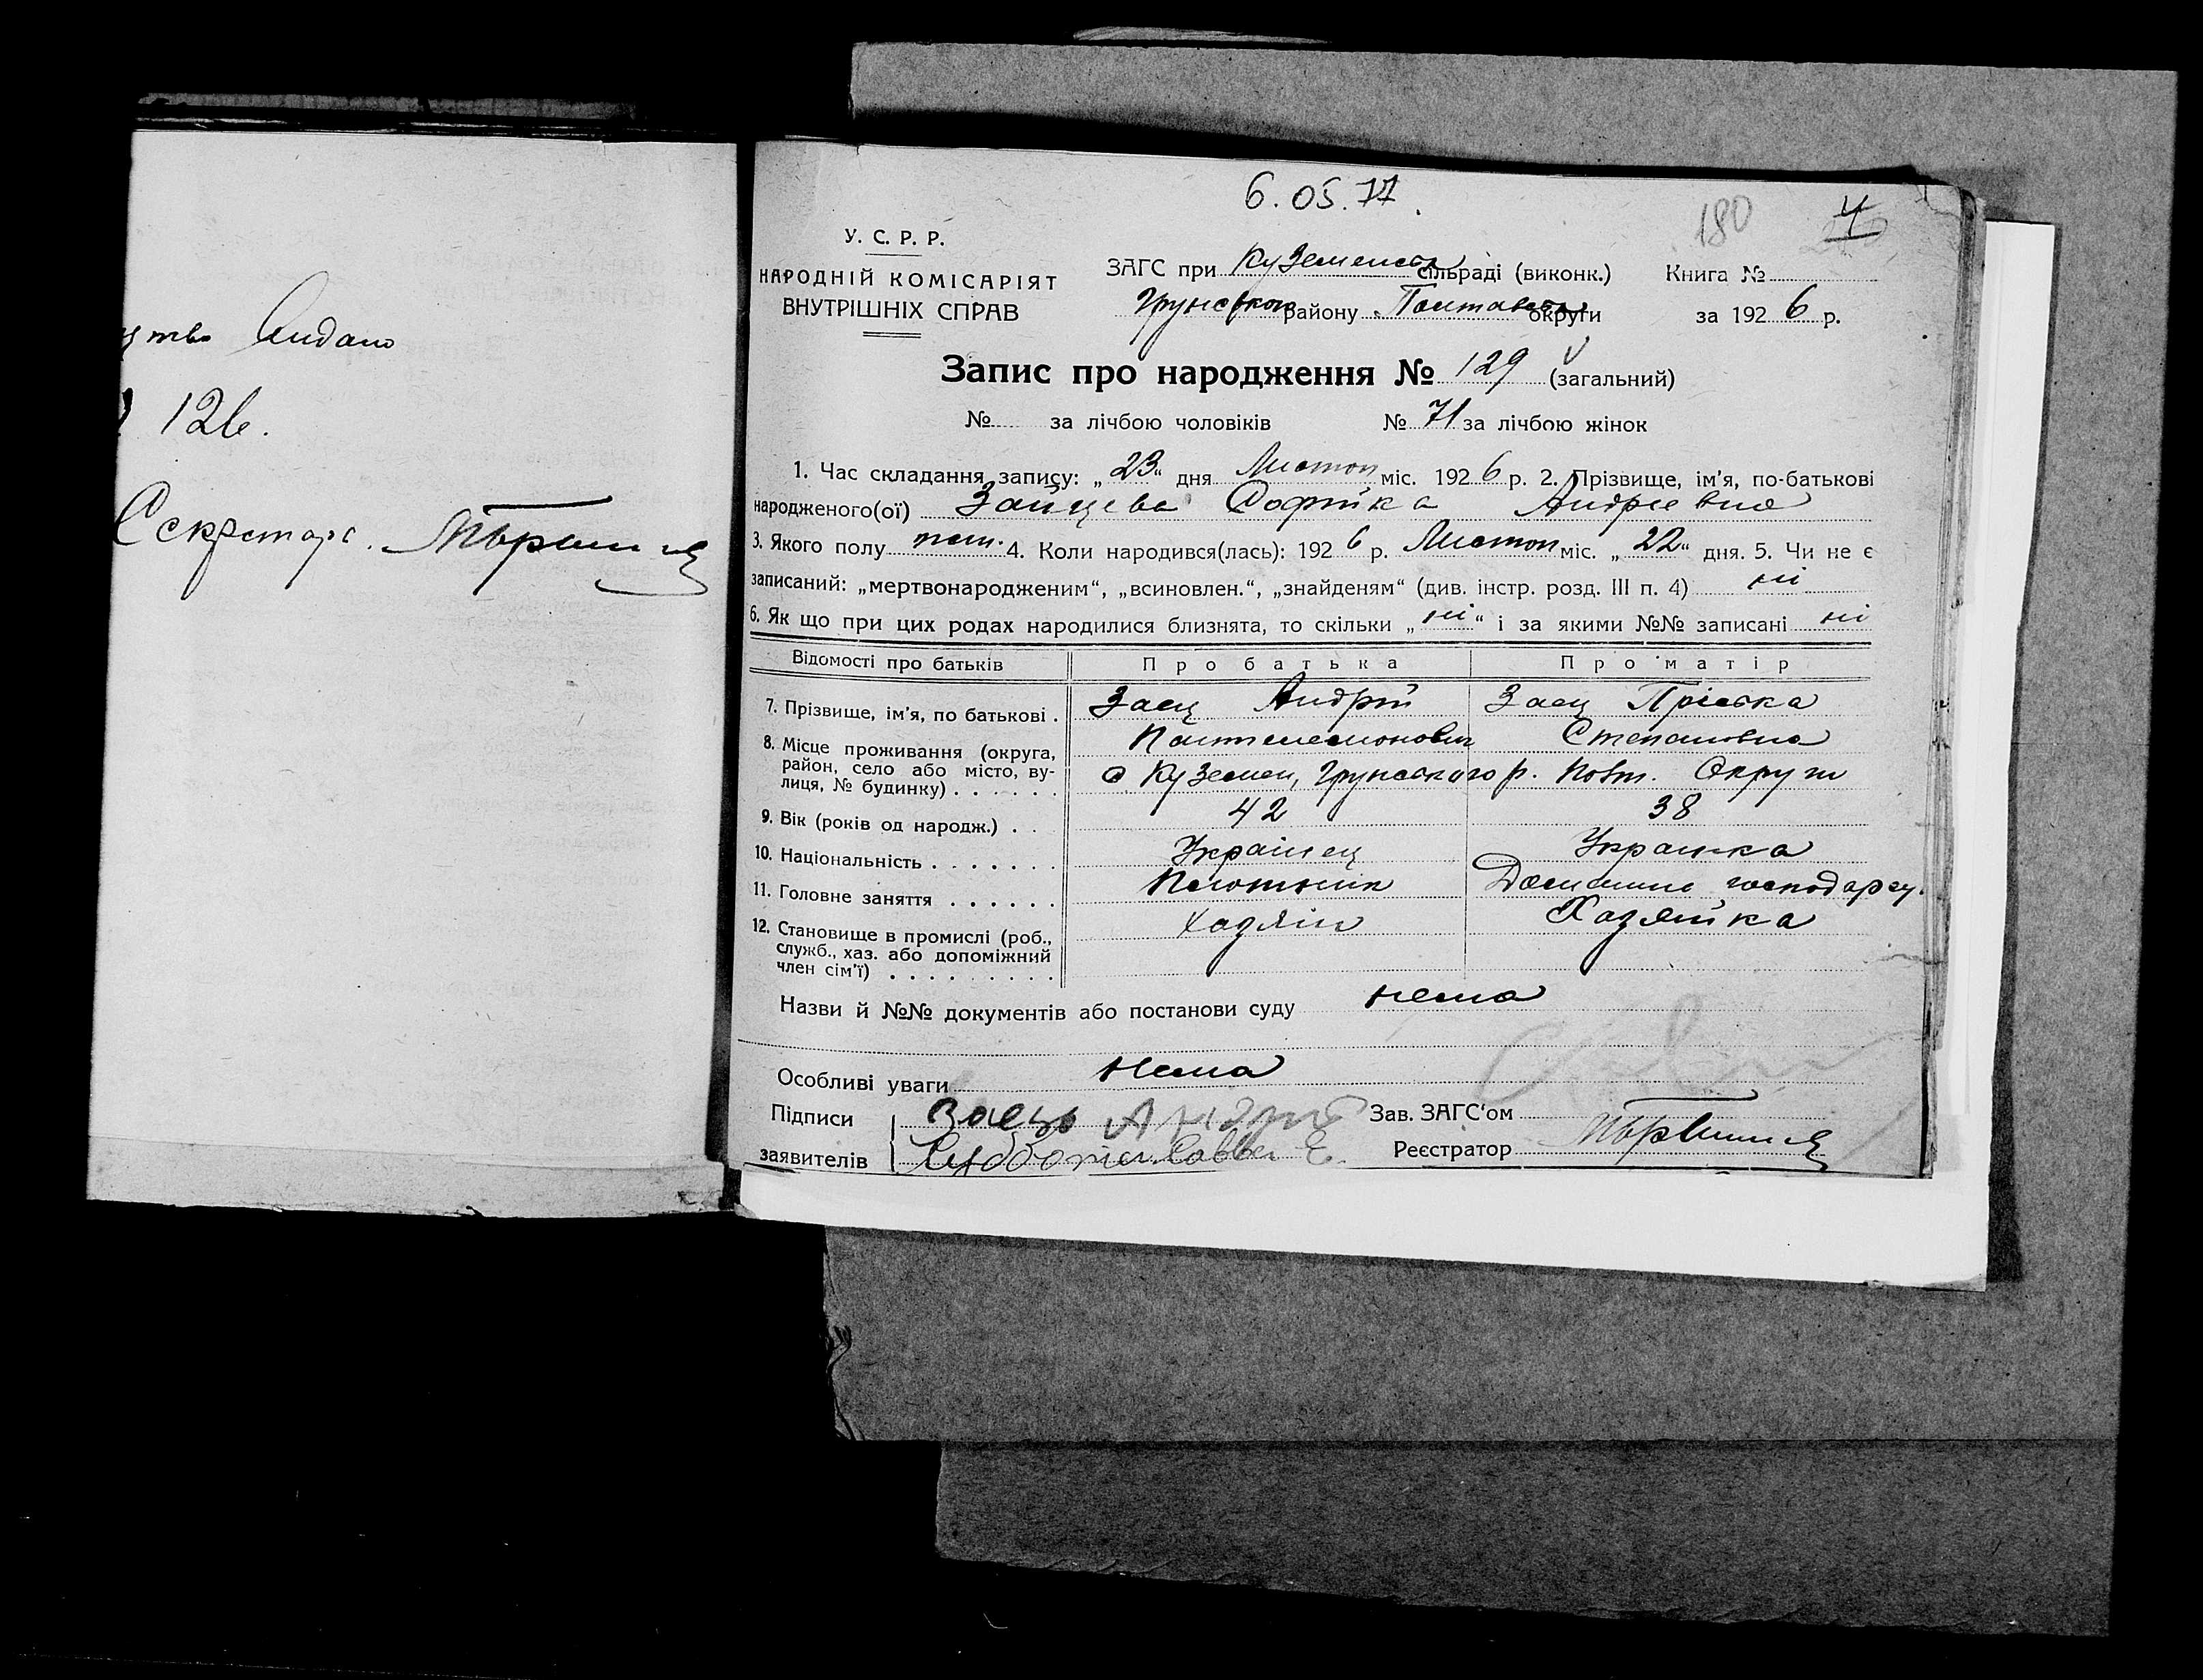 видано
126.
Секретарь.
6.05.77
180
4
У. С. Р. Р.
НАРОДНІЙ КОМІСАРІЯТ
ВНУТРІШНІХ СПРАВ
ЗАГС при Куземенськ сільраді (виконк.) Книга №
Грунського району Полтавськ округи за 1926 р.
Запис про народження № 129 (загальний)
№ за лічбою чоловіків № 71 за лічбою жінок
1. Час складання запису: „23“ дня Листоп міс. 1926 р. 2. Прізвище, ім'я, по-батькові
народженого(ої) Зайцева Софійка Андріевна
3. Якого полу 4. Коли народився(лась): 1926 р. Листоп міс. „22“ дня. 5. Чи не є
записаний: „мертвонародженим“, „всиновлен.“, „знайденям“ (див. інстр. розд. III п. 4) ні
6. Як що при цих родах народилися близнята, то скільки „ні“ і за якими №№ записані ні
Відомості про батьків Про батька Про матір
7. Прізвище, ім'я, по батькові . Заец Андрій Заец Пріська
Пантелемонович Степановна
8. Місце проживання (округа,
район, село або місто, ву-
лиця, № будинку) . . . . . . с Куземен, Грунського р. Полт. Округи
9. Вік (років од народж.) . . 42 38
10. Національність . . . . . . . Украінец Украінка
11. Головне заняття . . . . . . Плотник Домашнє господарсу.
12. Становище в промислі (роб.,
служб., хаз. або допоміжний
член сім'ї) . . . . . . . . . Хазяін Хазяйка
Назви й №№ документів або постанови суду нема
Особливі уваги нема
Підписи Заець Андрій Зав. ЗАГС'ом
заявителів Реєстратор